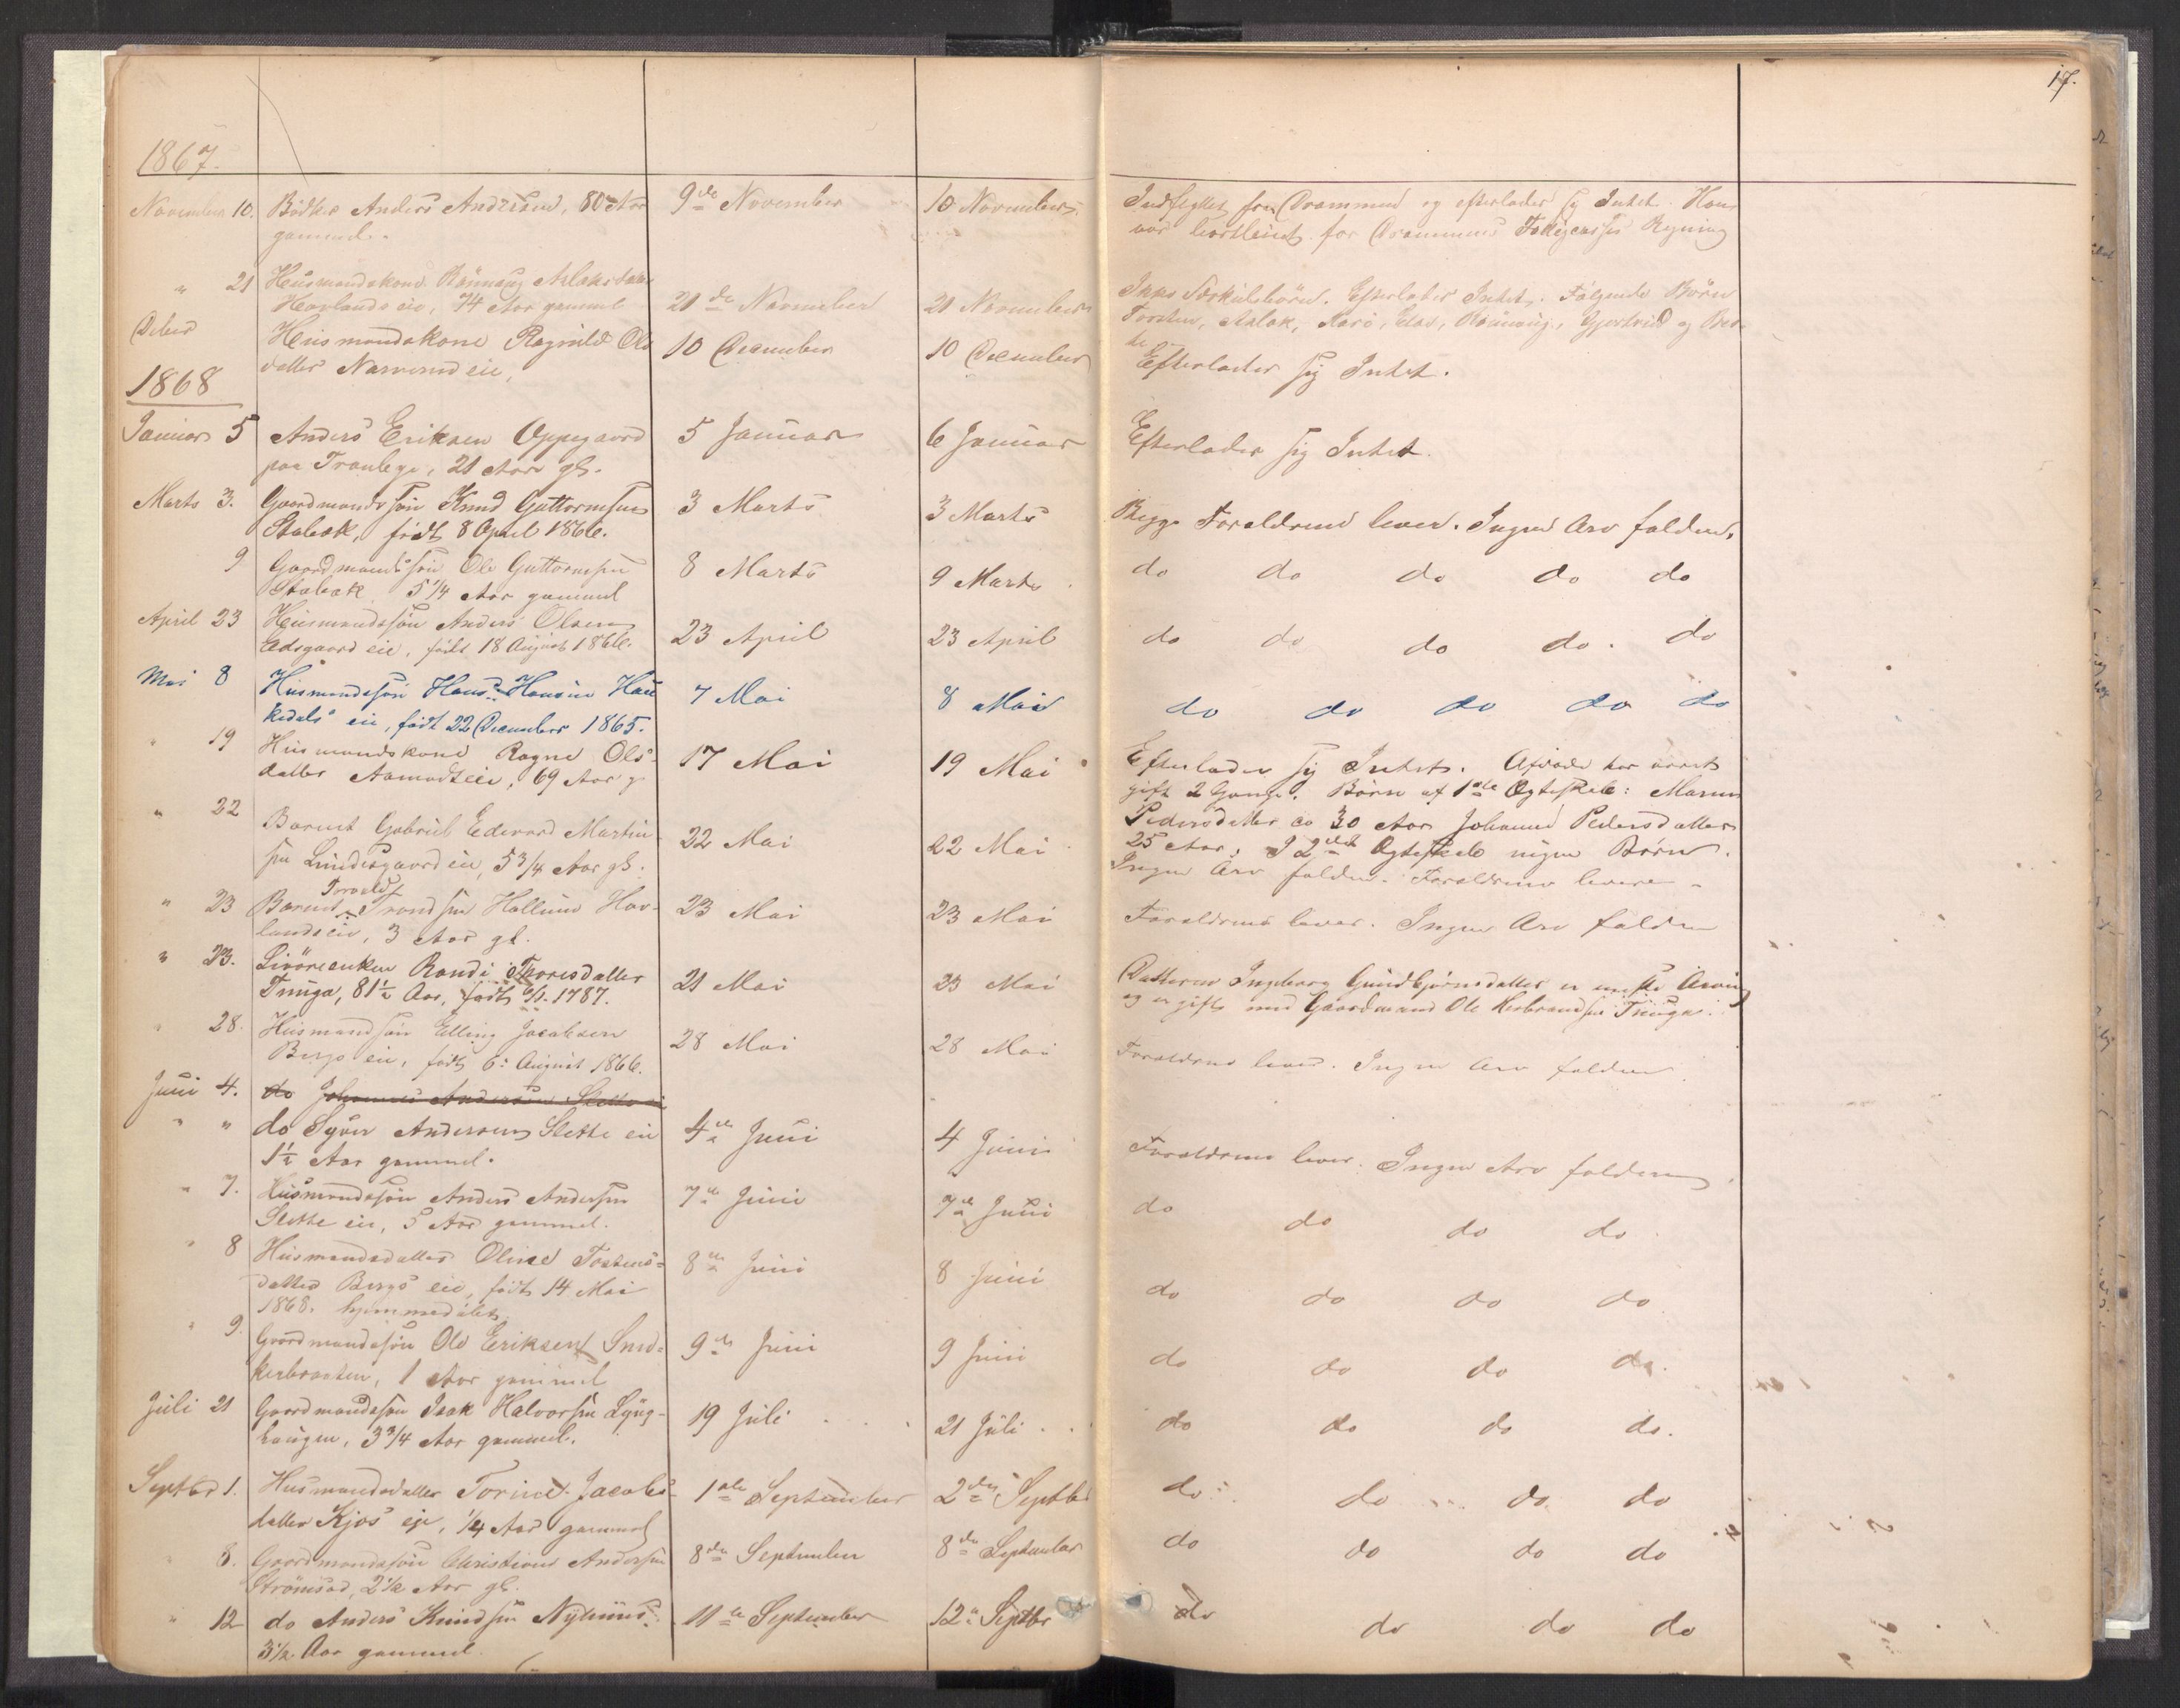 17.
1867.
November 10. Bödker Anders Andersen, 80 Aar 9de November 10 November. Indflyttet fra Drammen og efterlader sig Intet. Han
gammel. var for Drammens Fattigcasses Regning
" 21 Husmandskone Rönnaug Aslaksdatter
Havlands eie, 74 Aar gammel 21de November 21 November Ikke Særkulsbörn. Efterlader Intet. Fölgende Börn
Torsten, Aslak, Kari, Rönnaug, Gjertrud og Ber-
te
Decbr Husmandskone Ragnild Ols 10 December 10 December Efterlader sig Intet.
datter Narverud eie,
1868
Januar 5 Anders Eriksen Oppegaard 5 Januar 6 Januar Efterlader sig Intet.
paa Tranlege, 21 Aar gl.
Marts 3. Gaardmandssön Knud Guttormsen 3 Marts 3 Marts Begge Forældrene lever. Ingen Arv falden.
Stabæk, födt 8 April 1866.
9 Gaardmandssön Ole Guttormsen 8 Marts 9 Marts do do do do do
Stabæk 5 1/4 Aar gammel
April 23 Husmandssön Anders Olsen 23 April 23 April do do do do. do
Edsgaard eie, födt 18 August 1866.
Mai 8 Husmandssön Hans Hansen Hau 7 Mai 8 Mai do do do do do
kedals eie, födt 22 December 1865.
" 19 Husmandskone Ragne Ols- 17 Mai 19 Mai Efterlader sig Intet. Afdöde har været
datter Aamodt eie, 69 Aar g gift 2 Gange. Börn af 1ste Ægteskab: Maren
" 22 Barnet Gabriel Edvard Martin 22 Mai 22 Mai Pedersdatter ca 30 Aar Johanne Pedersdatter
sen Lundesgaard eie, 5 3/4 Aar gl. 25 Aar, I 2det Ægteskab ingen Börn.
Ingen Arv falden. Forældrene lever
" 23 Barnet Trondsen Hallum Hav- 23 Mai 23 Mai Forældrene lever. Ingen Arv falden
lands eie, 3 Aar gl.
" 23. Livöreenken Randi Thoresdatter 21 Mai 23 Mai Datteren Ingeborg Gundbjörnsdatter er eneste Arving
Tinga, 81 1/2 Aar, födt 6/1. 1787. og er gift med Gaardmand Ole Herbrandsen Tinga.
" 28. Husmandssön Elling Jacobsen 28 Mai 28 Mai Forældrene lever. Ingen Arv falden.
Bergs eie, födt 6. August 1866.
Juni 4. do Johannes Andersen Slette eie
" " do Syver Andersen Slette eie 4de Juni 4 Juni Forældrene lever. Ingen Arv falden.
1 1/2 Aar gammel.
" 7. Husmandssön Anders Andersen 7de Juni 7de Juni do do do do
Slette eie, 5 Aar gammel.
" 8 Husmandsdatter Oline Torstens- 8de Juni 8 Juni do do do do
datter Bergs eie, födt 14 Mai
1868. hjemmedöbt.
" 9. Gaardmandssön Ole Eriksen 9de Juni 9 Juni do do do do.
kerbraaten, 1 Aar gammel
Juli 21 Gaardmandssön Isak Halvorsen Lyng- 19 Juli 21 Juli do do do do.
haugen, 3 3/4 Aar gammel.
Septbr 1. Husmandsdatter Torine Jacobs- 1ste September 2den Septbr do do do do
datter Kjos eje, 1/4 Aar gammel
" 8. Gaardmandssön Christian Andersen 8de September 8de September do do do do
Strömsod, 2 1/2 Aar gl.
" 12 do Anders Knudsen Nyhuus 11te September 12te Septbr do do do do
3 1/2 Aar gammel.